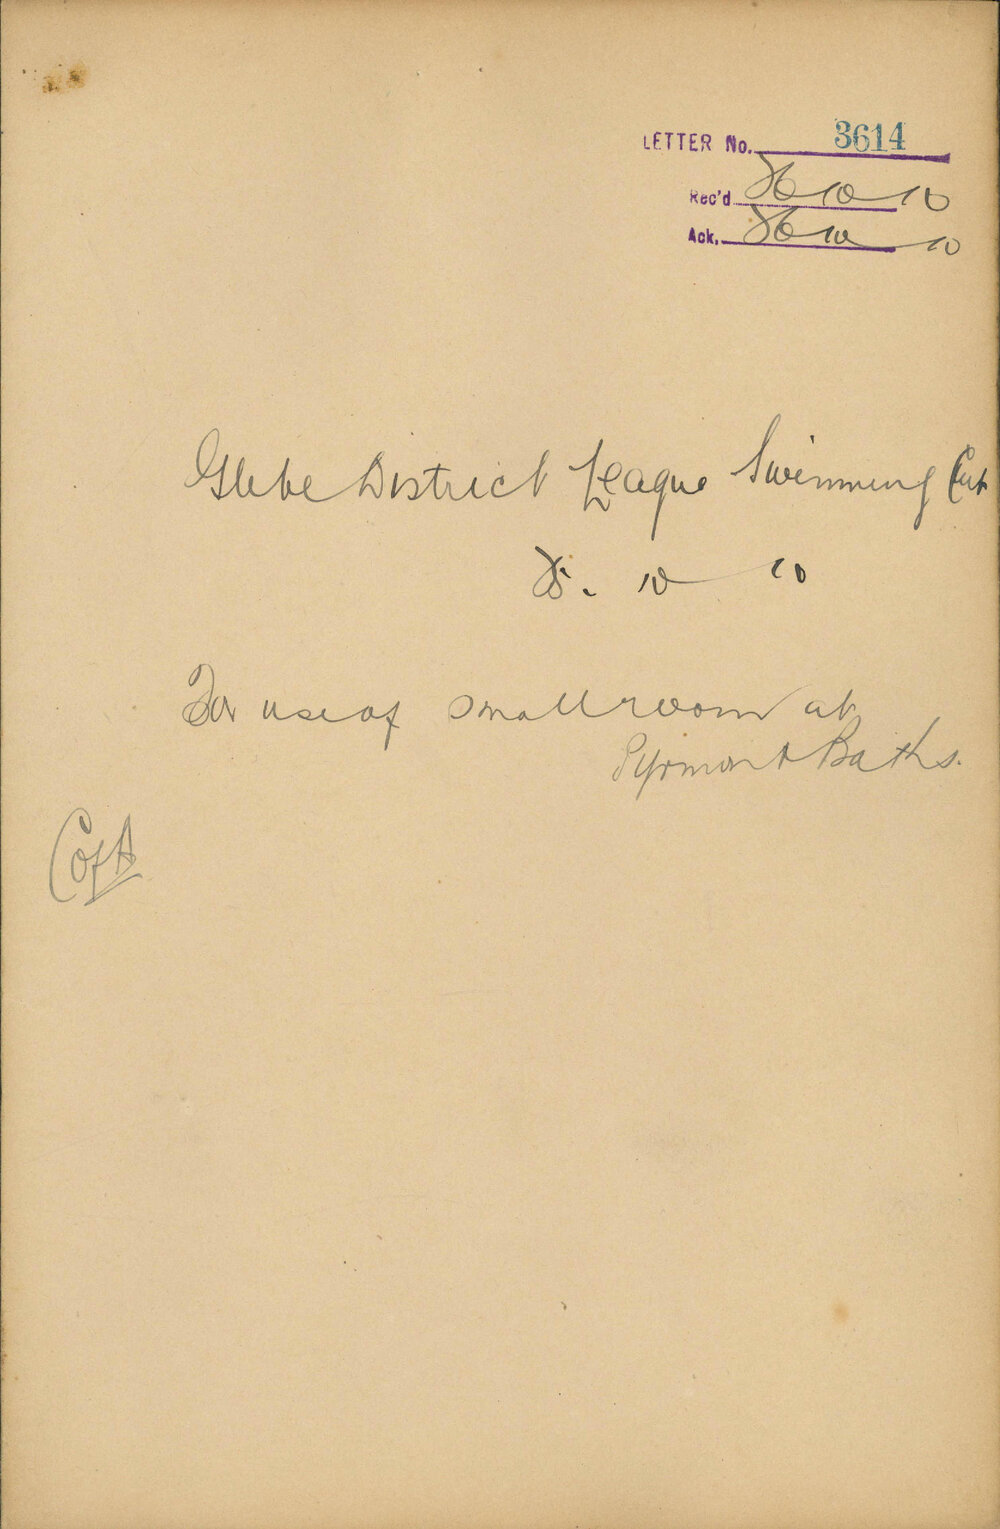 LETTER No. 3614
Rec'd 26 10 10
Ack. 26 10 10
Glebe District League Swimming Club
25. 10 10
For use of small room at
Pyrmont Baths.
C of A